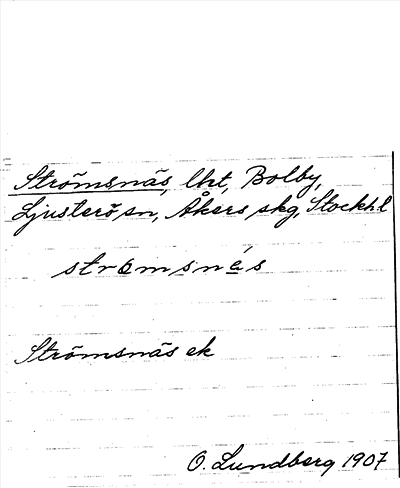 Strömsnäs, lht, Bolby,
Ljusterö sn, Åkers skg, Stockh.l
strömsnä́s
Strömsnäs ek
O. Lundberg 1907